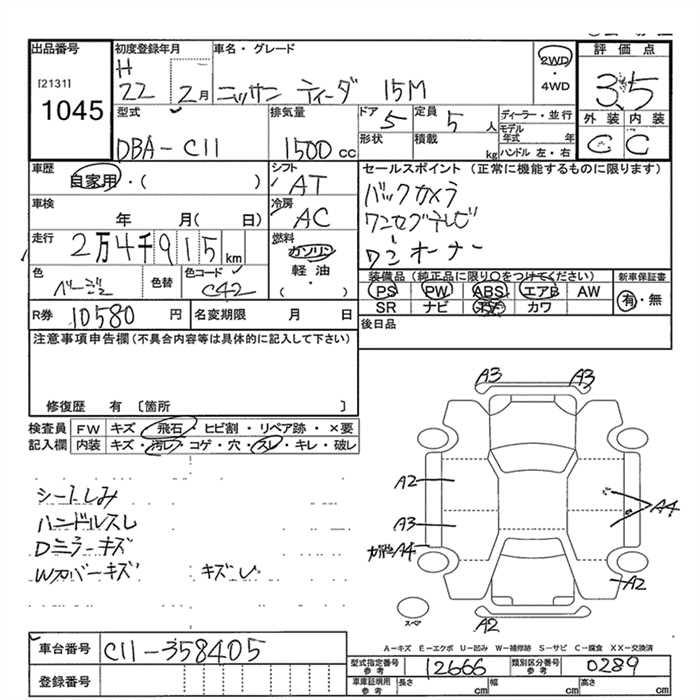 出品番号 初度登録年月 車名・グレード 2WD・4WD 評価点
[2131]
1045
H 22 2月 ニッサン ティーダ 15M 3.5
型式 排気量 ドア 定員 ディーラー・並行 外装 内装
DBA-C11 1500 cc 5 5 人 モデル年式 年 C C
形状 積載 kg ハンドル 左・右
車歴 自家用・( ) シフト AT セールスポイント (正常に機能するものに限ります)
車検 年 月( 日) 冷房 AC バックカメラ
ワンセグテレビ
走行 2万4千915km 燃料 ガソリン 軽油 ( ・ ) ワンオーナー
色 ベージュ 色替 色コード C42 装備品 (純正品に限り○をつけてください) 新車保証書
PS PW ABS エアB AW 有・無
SR ナビ カワ
R券 10580 円 名変期限 月 日 後日品
注意事項申告欄(不具合内容等は具体的に記入して下さい)
修復歴 有 〔箇所 〕
検査員 FW キズ・飛石・ヒビ割・リペア跡・×要
記入欄 内装 キズ・汚レ・コゲ・穴・スレ・キレ・破レ
シートしみ
ハンドルスレ
Dミラーキズ
Wカバーキズ
A3 A3
A2
A3 A4
A4
A2
スペア A2
A-キズ E-エクボ U-凹み W-補修跡 S-サビ C-腐食 XX-交換済
車台番号 C11-358405 型式指定番号 参考 12666 類別区分番号 参考 0289
登録番号 車庫証明用 参考 長さ cm 幅 cm 高さ cm